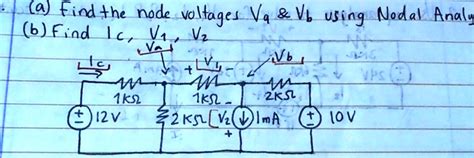 (a) Find the node voltages Va & Vb using Nodal Analy
(b) Find Ic, V1, V2
Va
Ic + V1 - Vb
1KΩ 1KΩ 2KΩ
+ - 12V 2KΩ - V2 + 1mA + - 10V